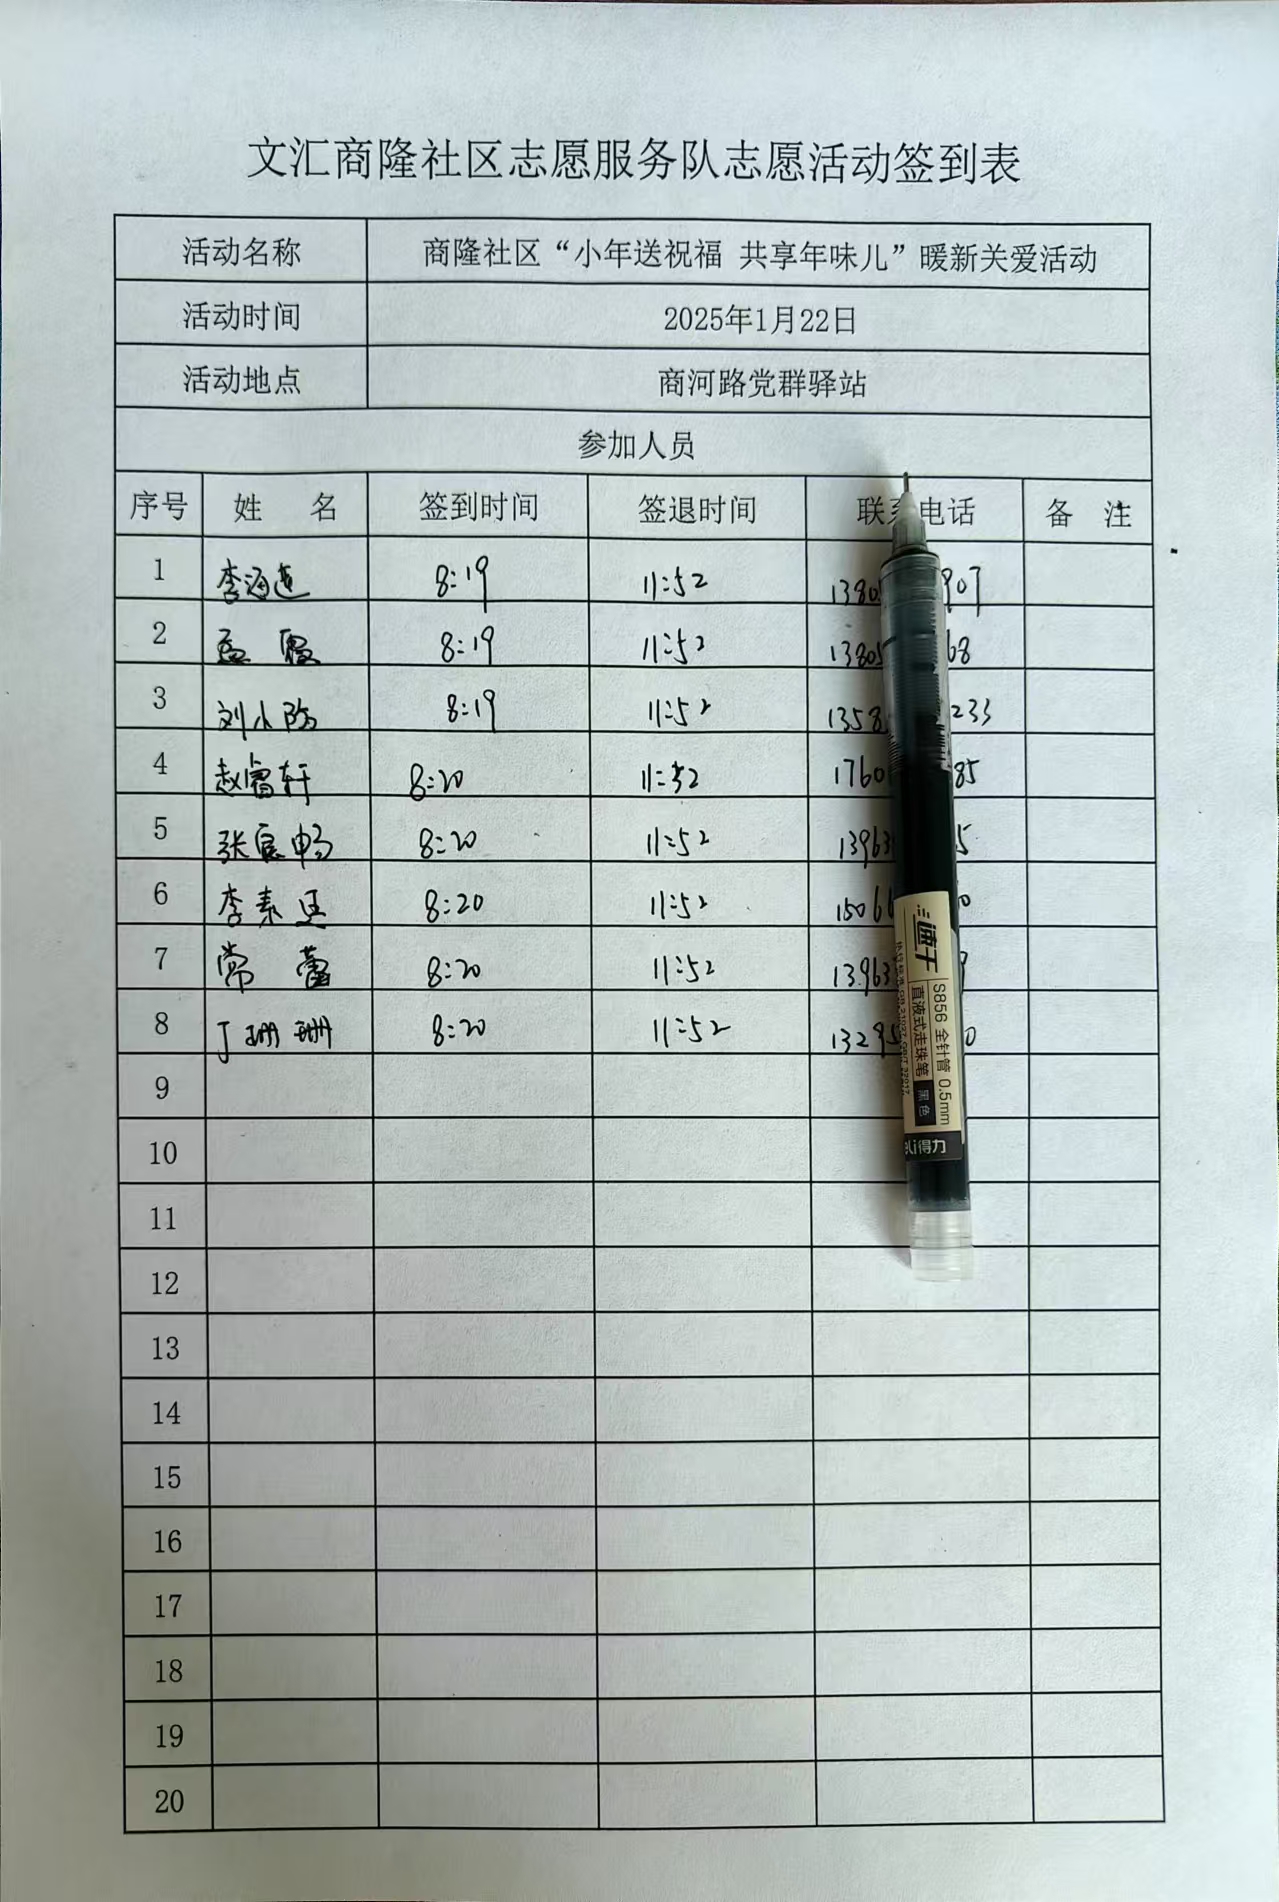 文汇商隆社区志愿服务队志愿活动签到表
活动名称 商隆社区“小年送祝福 共享年味儿”暖新关爱活动
活动时间 2025年1月22日
活动地点 商河路党群驿站
参加人员
序号 姓 名 签到时间 签退时间 联系电话 备 注
1 李海莲 8:19 11:52 1380 907
2 孟霞 8:19 11:52 1380 68
3 刘小 8:19 11:52 1358 233
4 赵睿轩 8:20 11:52 1760 85
5 张宸畅 8:20 11:52 13963 5
6 李素 8:20 11:52 1506 0
7 常蕾 8:20 11:52 13963
8 丁珊珊 8:20 11:52 1329 0
9
10
11
12
13
14
15
16
17
18
19
20
速干
S856 全针管 0.5mm
直液式走珠笔 黑色
deli得力